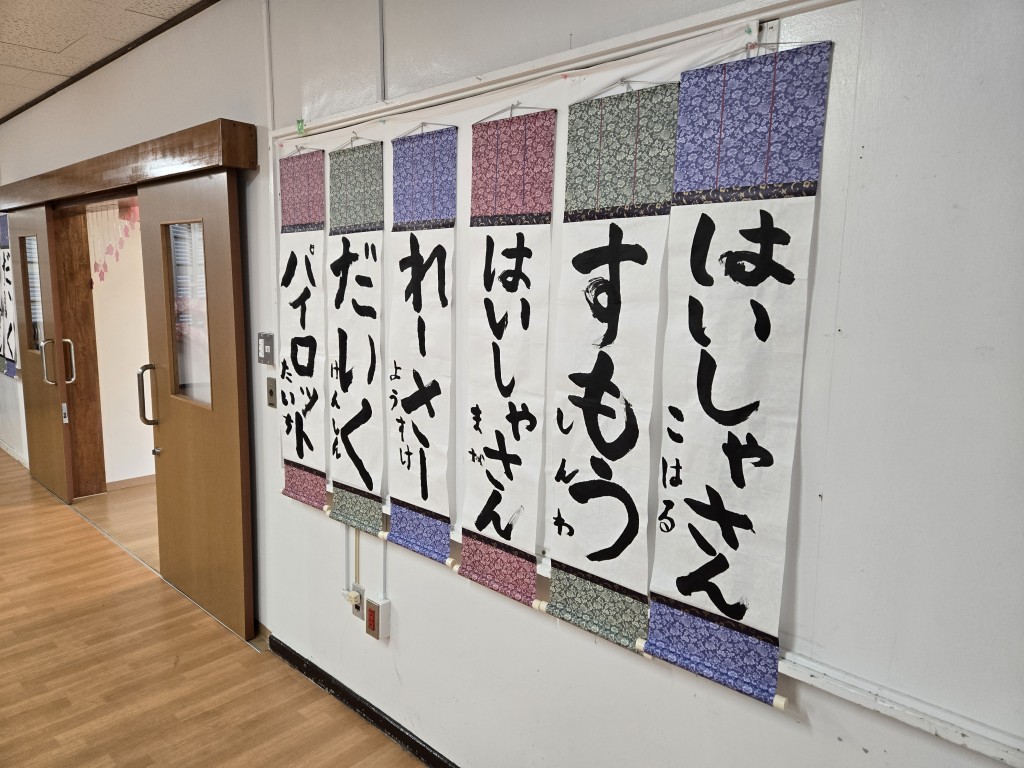 はいしゃさん
こはる
すもう
しんわ
はいしゃさん
れーさー
ようすけ
だいく
けんしん
パイロット
だいく